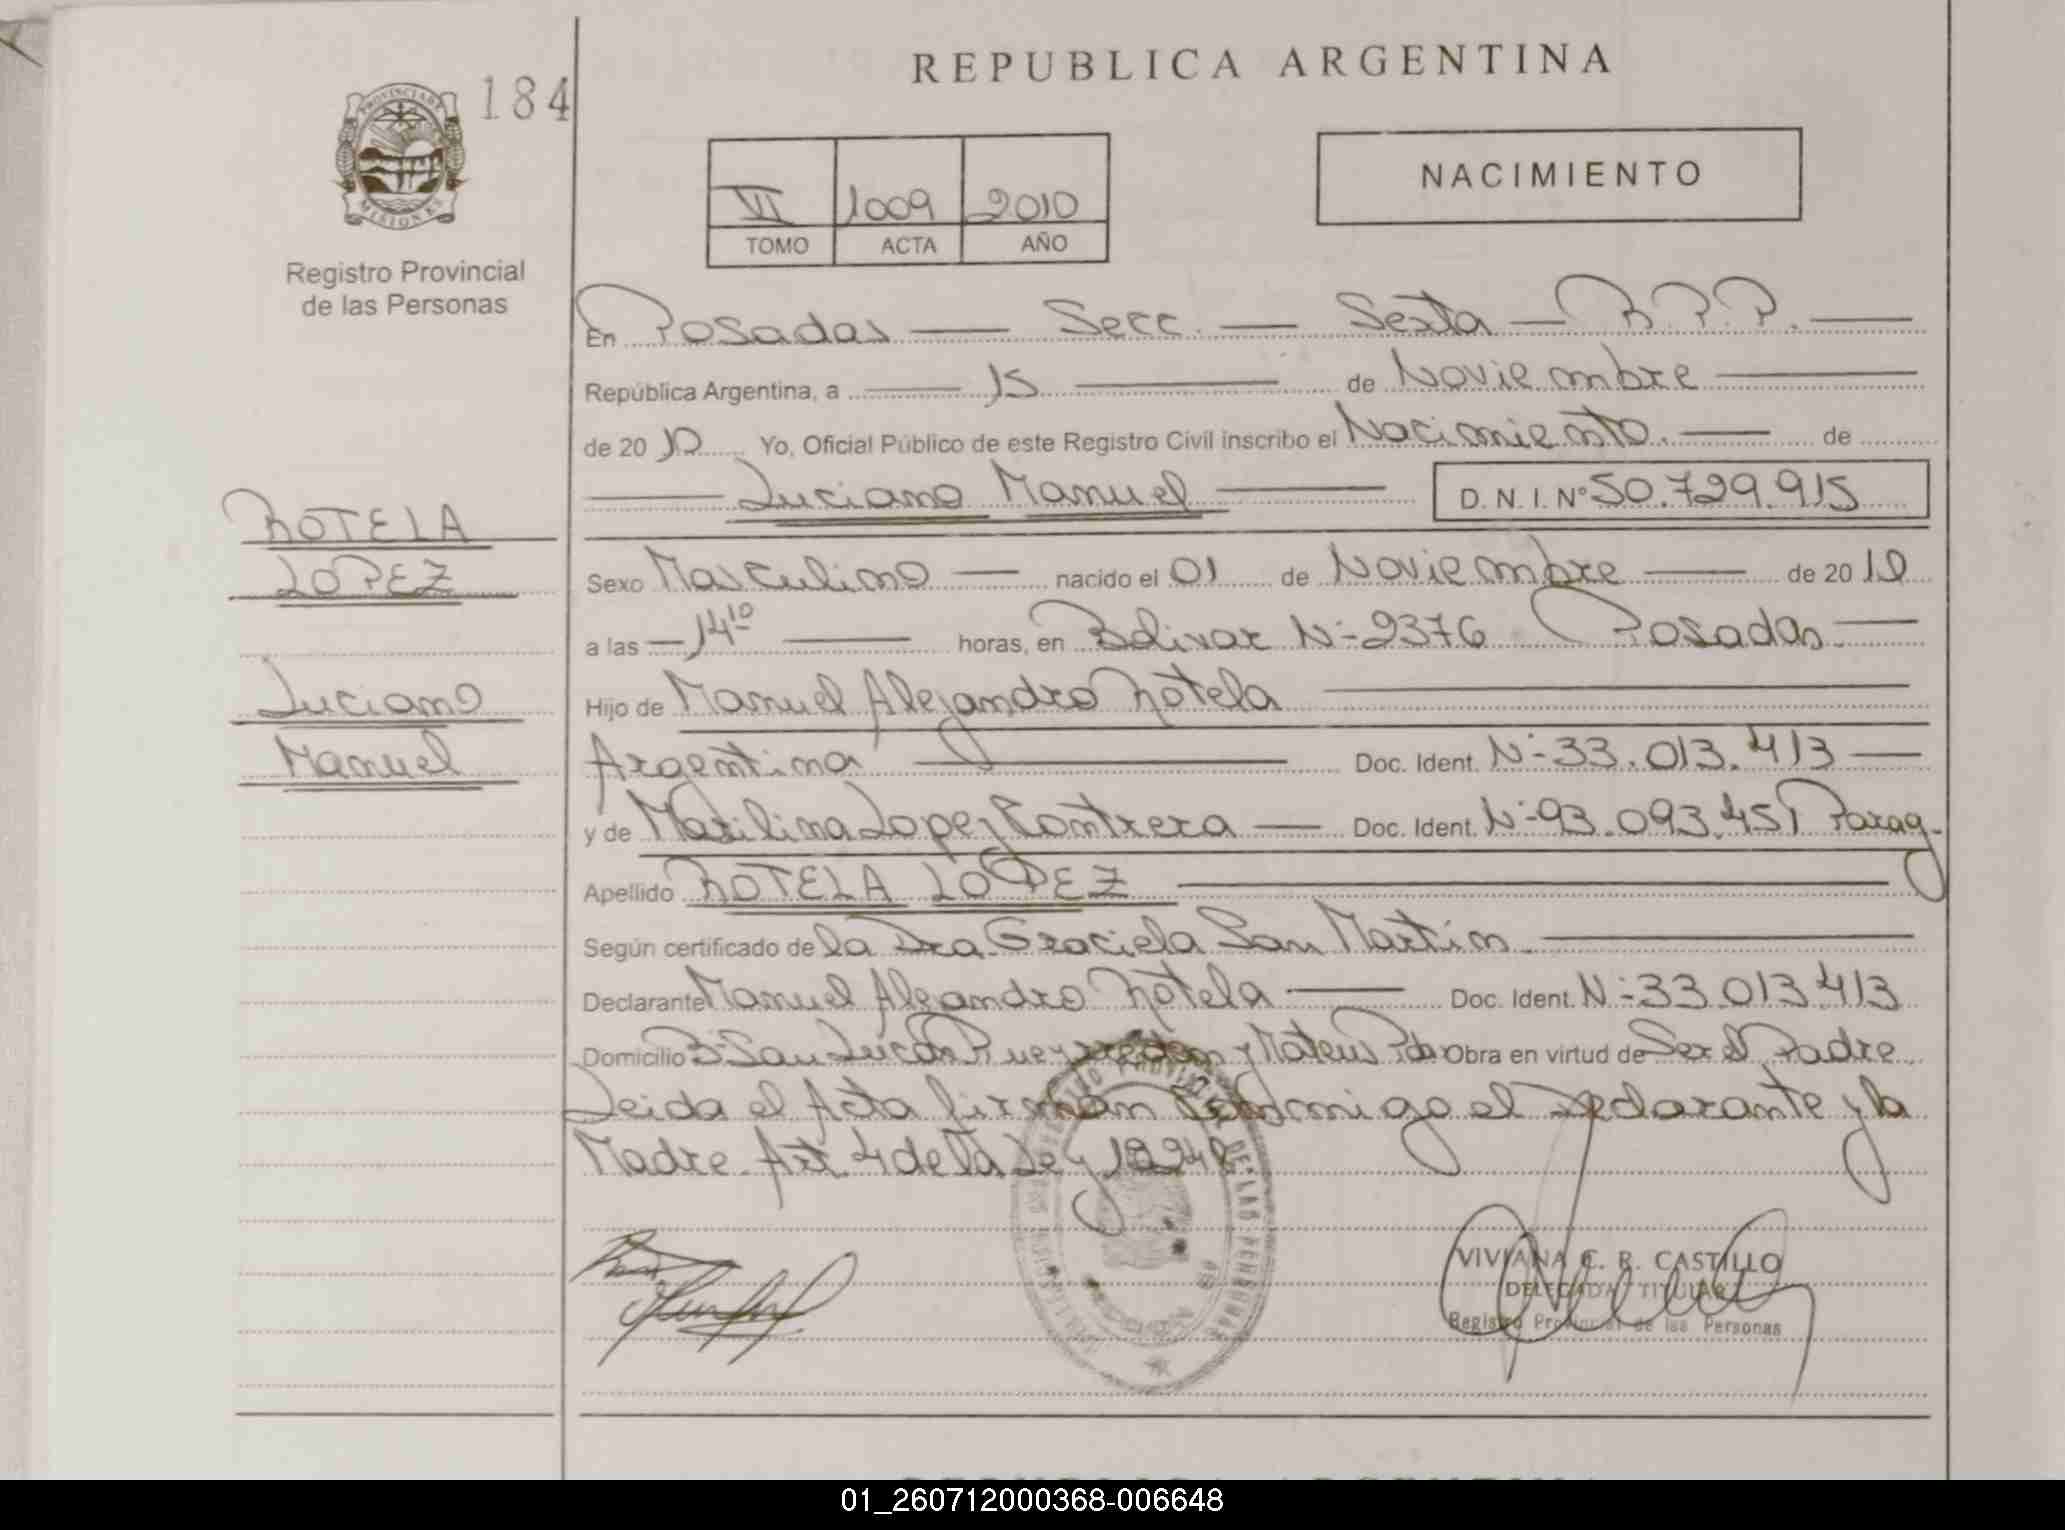 184
REPUBLICA ARGENTINA
PROVINCIA DE MISIONES
Registro Provincial
de las Personas
VI 1009 2010
TOMO ACTA AÑO
NACIMIENTO
En Posadas — Secc. — Sexta — R.P.P. —
República Argentina, a — 15 — de Noviembre —
de 2010 Yo, Oficial Público de este Registro Civil inscribo el Nacimiento. — de
— Luciano Manuel — D.N.I. Nº 50.729.915
ROTELA
LOPEZ
Luciano
Manuel
Sexo Masculino — nacido el 01 de Noviembre — de 2010
a las — 14 10 — horas, en Bolivar Nº 2376 Posadas —
Hijo de Manuel Alejandro Rotela —
Argentina — Doc. Ident. Nº 33.013.413 —
y de Marilina Lopez Contrera — Doc. Ident. Nº 93.093.451 Parag-
Apellido ROTELA LOPEZ —
Según certificado de la Dra. Graciela San Martin. —
Declarante Manuel Alejandro Rotela — Doc. Ident. Nº 33.013.413
Domicilio Bº San Lucas Pueyrredon y Mateus Pdas Obra en virtud de Ser el Padre.
Leida el Acta firman Conmigo el Declarante y la
Madre. Art. 4 de la Ley
VIVIANA C. R. CASTILLO
DELEGADA TITULAR
Registro Provincial de las Personas
01_260712000368-006648